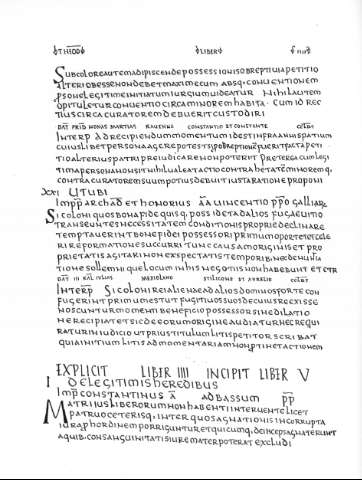 THEOD LIBER IIII
SUBCOLORE AUTEM ADIPISCENDE POSSESSIONIS OBREPTIUA PETITIO
ALTERI OBESSE NON DEBET MAXIME CUM ABSQ· CONUENTIONEM
PSONE LEGITIME INITIATUM IURGIUM UIDEATUR NIHIL AUTEM
OPITULETUR CONUENTIO CIRCA MINOREM HABITA · CUM ID REC
TIUS CIRCA CURATOREM DEBUERIT CUSTODIRI
DAT PRID NONAS MARTIAS RAUENNE CONSTANTIO ET CONSTANTE
INTERP AD RECIPIENDUM MOMENTUM IDEST INFRA ANNI SPATIUM
CUIUSLIBET PERSONA AGERE POTEST SI OBREPTIONE FUERIT FACTA PETI
TIO ALTERIUS PATRI PREIUDICARE NON POTERIT PRETEREA CUM LEGI
TIMA PERSONA NON SIT NIHIL UALEAT ACTIO CONTRABETATE MINOREM Q·
CONTRA CURATOREM SUUM POTIUS DEBUIT IUSTA RATIONE PROPONI
XXI UTUBI
IMPP ARCHAD ET HONORIUS AA UINCENTIO PPO GALLIAR
SI COLONI QUOS BONA FIDE QUISQ· POSSIDET AD ALIOS FUGAE UITIO
TRANSEUNTES NECESSITATEM CONDITIONIS PROPRIE DECLINARE
TEMPTAUERINT BONE FIDEI POSSESSORI PRIMUM OPORTET CELE
RI REFORMATIONE SUCCURRI TUNC CAUSAM ORIGINIS ET PRO
PRIETATIS AGITARI NON EXPECTATIS TEMPORIB·
TIONE SOLLEMNI QUE LOCUM IN HIS NEGOTIIS NON HABEBUNT ET CTR
MEDIOLANO STILICONE ET AURELIO
INTERP SI COLONI RE ALIENA E AD ALIOS DOMINOS FORTE CON
FUGERINT PRIMUM ESTUT FUGITIUOS SUOS DECUIUS RE EXISSE
NOSCUNTUR MOMENTI BENEFICIO POSSESSOR SINE DILATIO
NE RECIPIAT ET SIC DEORUM ORIGINE AUDIATUR NEC REQUI
RATUR IN IUDICIO UTPRIUS TITULUM LITIS PETITOR SCRIBAT
QUIA INITIUM LITIS AD MOMENTARIAM NON PTINET ACTIONEM
EXPLICIT LIBER IIII INCIPIT LIBER V
I DE LEGITIMIS HEREDIBUS
IMP CONSTANTINUS A AD BASSUM PP
MATRI IUS LIBERORUM NON HABENTI INTERUENTE LICET
PATRUO CETERISQ· INTER QUOS AGNATIONIS INCORRUPTA
IURA PHORDINEM PORRIGUNTUR ET QUICUMQ· DEINCEPS AGNATI ERUNT
AQUIB· CONSANGUINITATIS IURE MATER POTERAT EXCLUDI